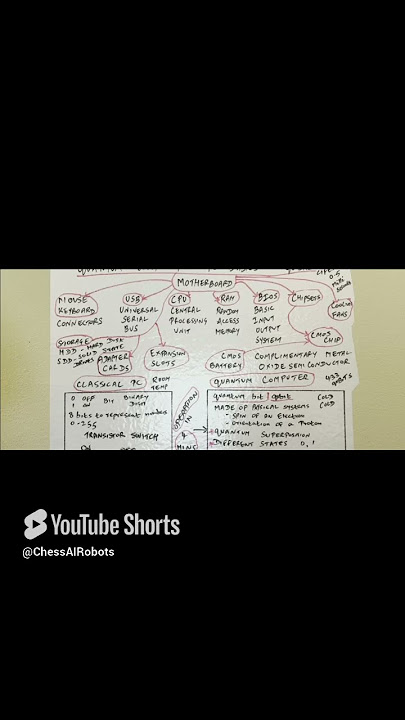 QUANTUM
MOTHERBOARD
MOUSE
KEYBOARD
CONNECTORS
USB
UNIVERSAL
SERIAL
BUS
CPU
CENTRAL
PROCESSING
UNIT
RAM
RANDOM
ACCESS
MEMORY
BIOS
BASIC
INPUT
OUTPUT
SYSTEM
CHIPSETS
COOLING
FANS
CMOS
CHIP
STORAGE
HDD - HARD DISK
SDD - SOLID STATE DRIVES
ADAPTER
CARDS
EXPANSION
SLOTS
CMOS
BATTERY
COMPLIMENTARY METAL
OXIDE SEMICONDUCTOR
CLASSICAL PC
ROOM
TEMP
QUANTUM COMPUTER
433
QUBITS
0 OFF
1 ON
BIT
BINARY
DIGIT
8 bits to represent numbers
0-255
TRANSISTOR SWITCH
SUPERPOSITION
IN
4
MINS
quantum bit / qbit
COLD
MADE OF PHYSICAL SYSTEMS
COLD
- SPIN OF AN Electron
- Orientation of a Photon
QUANTUM SUPERPOSITION
DIFFERENT STATES 0, 1
YouTube Shorts
@ChessAIRobots